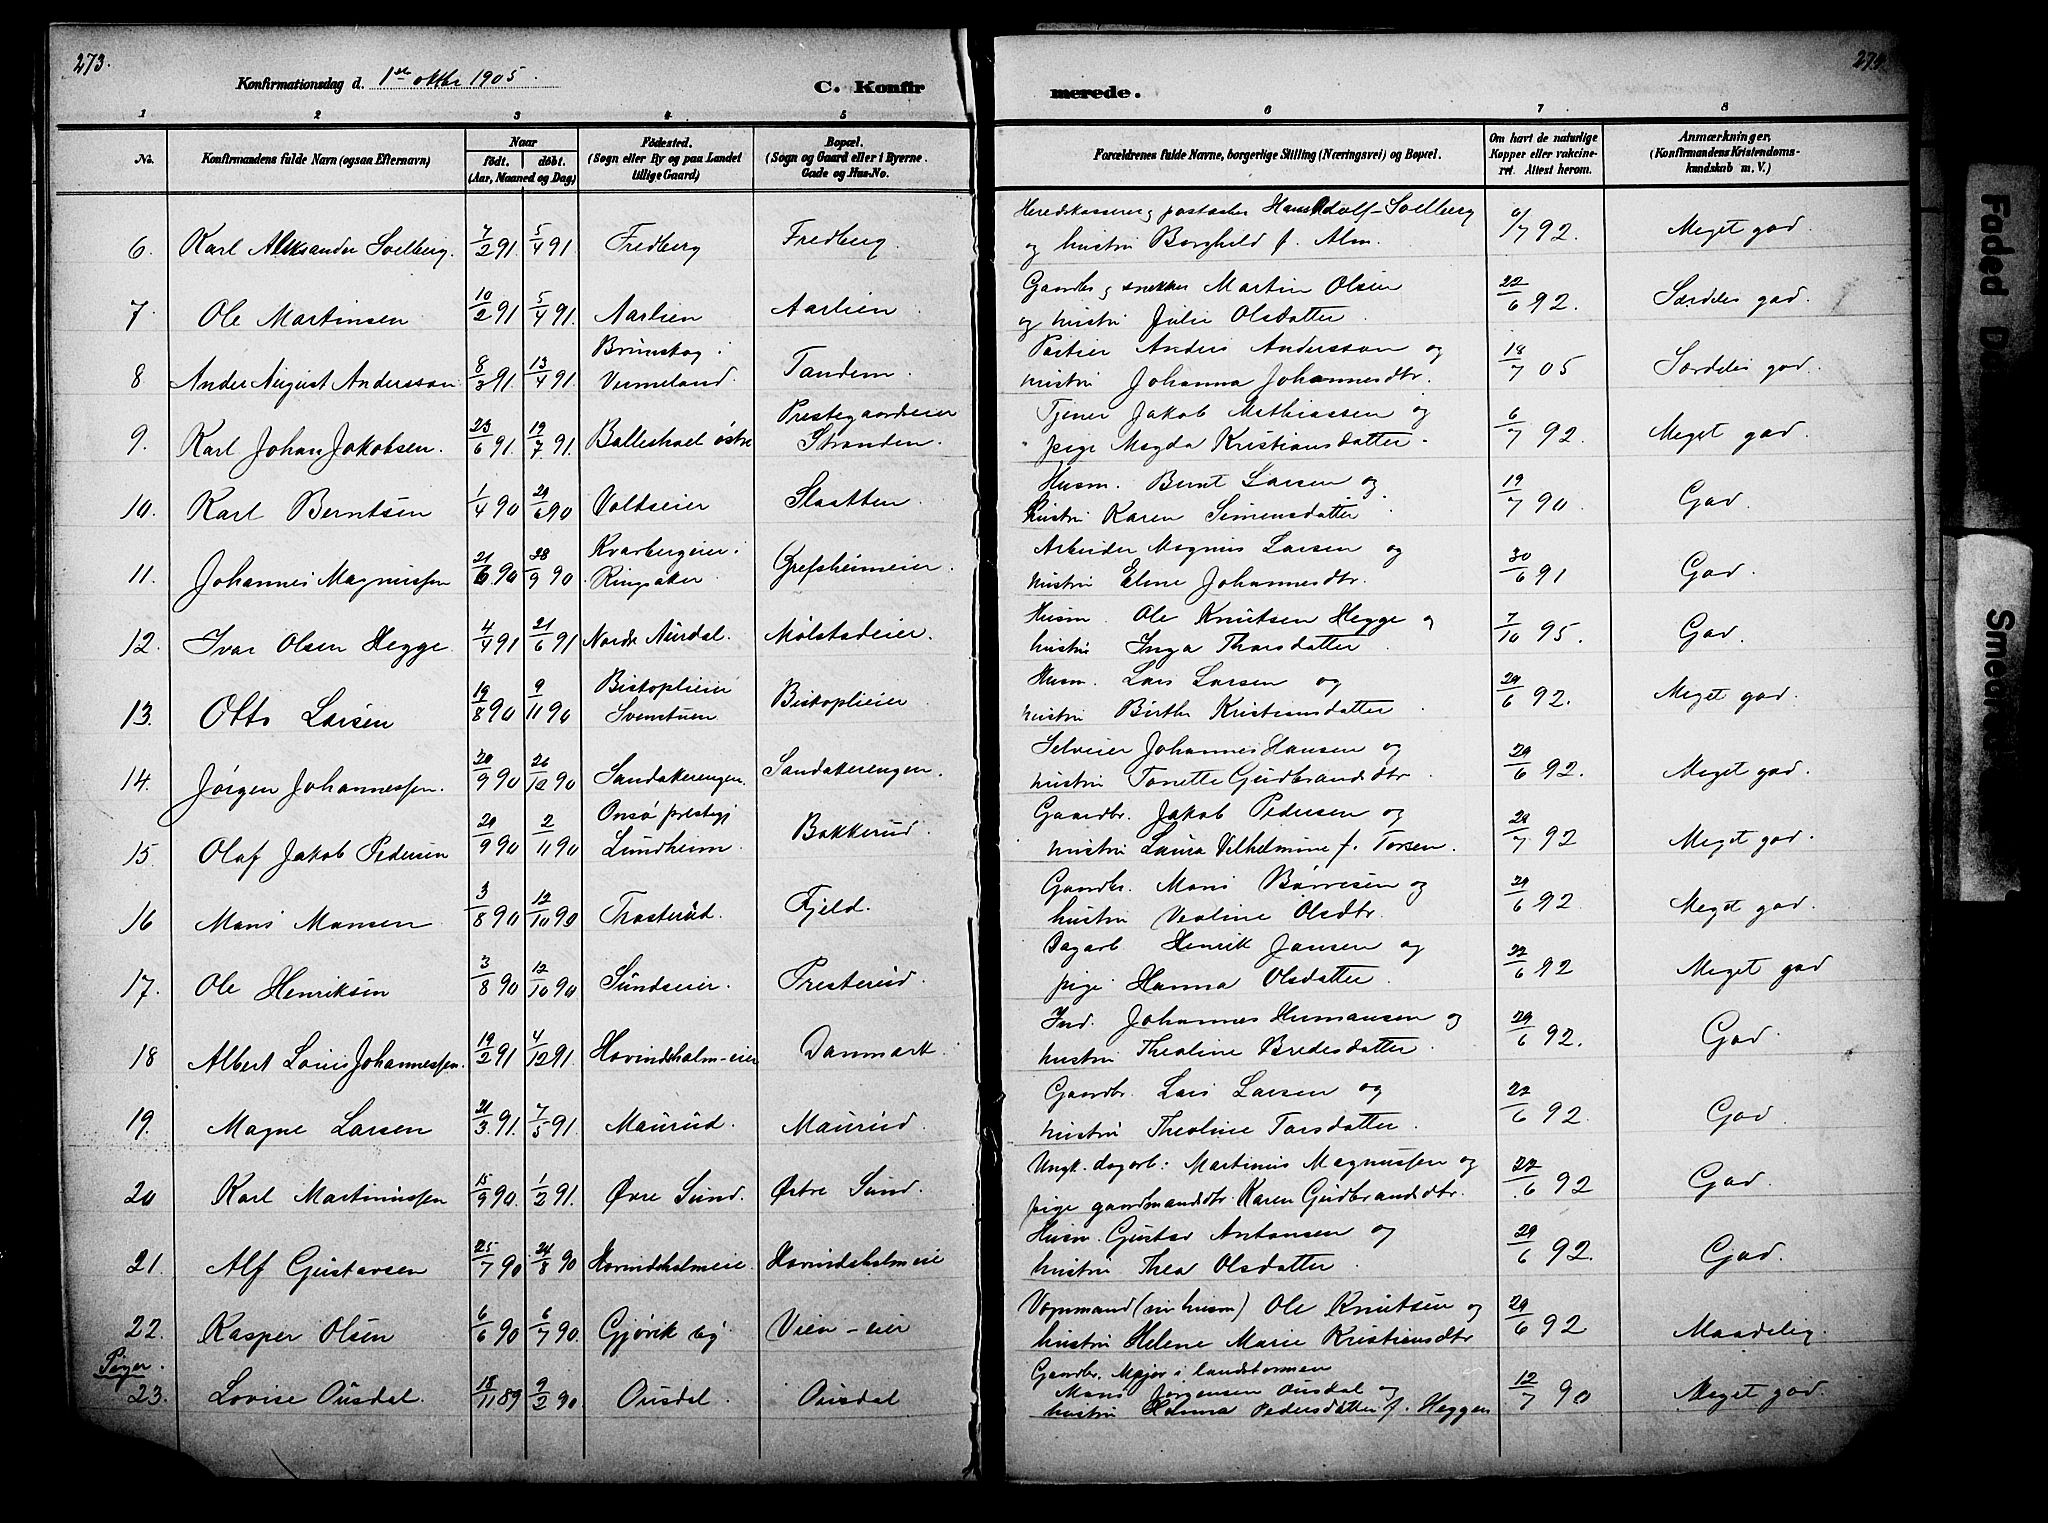 273.
Konfirmationsdag d. 1ste oktbr 1905.
C. Konfirmerede.
1 2 3 4 5 6 7 8
No. Konfirmandens fulde Navn (ogsaa Efternavn) Naar født. døbt. (Aar, Maaned og Dag) Fødested. (Sogn eller By og paa Landet tillige Gaard) Bopæl. (Sogn og Gaard eller i Byerne. Gade og Hus-No. Forældrenes fulde Navne, borgerlige Stilling (Næringsvei) og Bopæl. Om havt de naturlige Kopper eller vakcineret. Attest herom. Anmærkninger. (Konfirmandens Kristendomskundskab m. V.)
6. Karl Aleksander Soelberg. 7/2 91. 5/4 91. Fredberg Fredberg. Heredskasserer og Hans Adolf Soelberg
og hustru Borghild f. Alm. 6/7 92. Meget god.
7. Ole Martinsen 10/2 91 5/4 91. Aarlien Aarlien. Gaardbr. og snekker Martin Olsen
og hustru Julie Olsdatter. 22/6 92. Særdeles god.
8 Anders August Andersson 8/3 91. 13/4 91. Brunskog i Vermeland. Tandem. Portier Anders Andersson og
hustru Johanna Johannesdtr. 18/7 05 Særdeles god.
9. Karl Johan Jakobsen. 23/6 91. 19/7 91. Balleshoel østre Prestegaardseier Stranden. Tjener Jakob Mathiassen og
pige Magda Kristiansdatter. 6/7 92. Meget god.
10. Karl Berntsen 1/4 90 29/6 90 Voldseier Slaatten Husm. Bernt Larsen og
hustru Karen Simensdatter. 19/7 90. God.
11. Johannes Magnussen 21/6 90 28/9 90. Kvarbergeier i Ringsaker. Grefsheimeier. Arbeider Magnus Larsen og
hustru Eline Johannesdtr. 30/6 91 God.
12. Ivar Olsen Hegge. 4/4 91 21/6 91 Nordr Aurdal. Mølstadeier. Husm. Ole Knutsen Hegge og
hustru Inga Thorsdatter. 7/10 95. God.
13. Otto Larsen 19/8 90 9/11 90 Biskoplieier Svenstuen Biskoplieier Husm. Lars Larsen og
hustru Birthe Kristiansdatter. 29/6 92. Meget god.
14. Jørgen Johannessen. 20/9 90 26/12 90 Sandakerengen. Sandakerengen. Selveier Johannes Hansen og
hustru Tonette Gudbrandsdtr. 29/6 92. Meget god.
15. Olaf Jakob Pedersen 29/9 90 2/11 90 Onsø prestegj Lundheim. Bakkerud. Gaardbr. Jakob Pedersen og
hustru Laura Vilhelmine f. Torsen. 28/7 92 Meget god.
16 Mons Monsen 3/8 90 12/10 90 Trosterud. Fjeld. Gaardbr. Mons Børresen og
hustru Veoline Olsdtr. 29/6 92 Meget god.
17. Ole Henriksen 3/8 90 12/10 90 Sundseier. Presterud. Dagarb. Henrik Jansen og
pige Hanna Olsdatter. 22/6 92 Meget god
18 Albert Louis Johannessen. 19/2 91 4/12 91. Hovindsholm-eier Danmark. Ind. Johannes Hermansen og
hustru Theoline Bredesdatter. 29/6 92. God
19. Magne Larsen 21/3 91. 7/5 91. Maurud. Maurud. Gaardbr. Lars Larsen og
hustru Theoline Torsdatter. 22/6 92. God.
20 Karl Martinussen 15/9 90. 1/2 91. Øvre Sund. Østre Sund. Ungk. dagarb: Martinus Magnussen og
pige gaardmandsdtr. Karen Gudbrandsdtr. 22/6 92 God.
21. Alf Gustavsen 25/7 90 24/8 90 Hovindsholmeie. Hovindsholmeie Husm. Gustav Antonsen og
hustru Thea Olsdatter. 29/6 92. God.
22. Kasper Olsen 6/6 90 6/7 90. Gjøvik by. Vien-eier Vognmand Ole Knutsen og
hustru Helene Marie Kristiansdtr 29/6 92 Maadelig.
Piger.
23. Lovise Ousdal. 18/11 89 9/2 90 Ousdal Ousdal Gaardbr. Major i landstormen
Mons Jørgensen Ousdal og
hustru Hanna Pedersdatter f. Heggen 12/7 90 Meget god.
Faded
Smeared